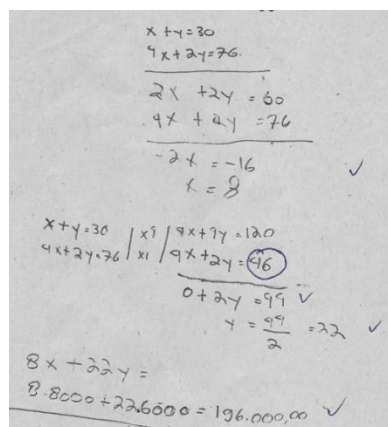 x + y = 30
4x + 2y = 76.
2x + 2y = 60
4x + 2y = 76
-2x = -16
x = 8
x + y = 30 | x4 | 4x + 4y = 120
4x + 2y = 76 | x1 | 4x + 2y = 46
0 + 2y = 44
y = 44/2 = 22
8x + 22y =
8.8000 + 22.6000 = 196.000,00